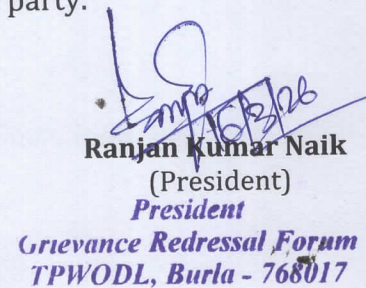 party.
16/3/26
Ranjan Kumar Naik
(President)
President
Grievance Redressal Forum
TPWODL, Burla - 768017